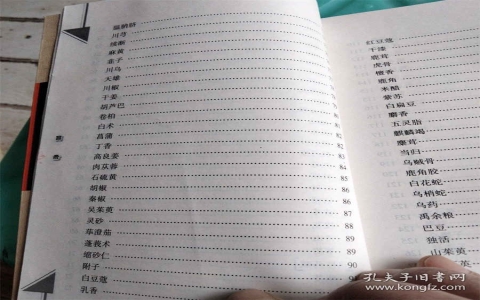 腽肭脐
川芎
续断
麻黄
韭子
川乌
天雄
川椒
干姜
胡芦巴
卷柏
白术
菖蒲 82
丁香 82
高良姜 83
肉苁蓉 84
石硫黄 85
胡椒 86
秦椒 86
吴茱萸 87
灵砂 87
荜澄茄 88
蓬莪术 88
缩砂仁 89
附子 90
白豆蔻
乳香
红豆蔻
干漆
鹿茸
虎骨
麝香
鹿角
米醋
紫苏
白扁豆
麝香
五灵脂
麒麟竭
麋茸
当归
乌贼骨
鹿角胶
白花蛇
乌梢蛇
乌药
禹余粮
巴豆
独活
山茱萸
孔夫子旧书网
www.kongfz.com